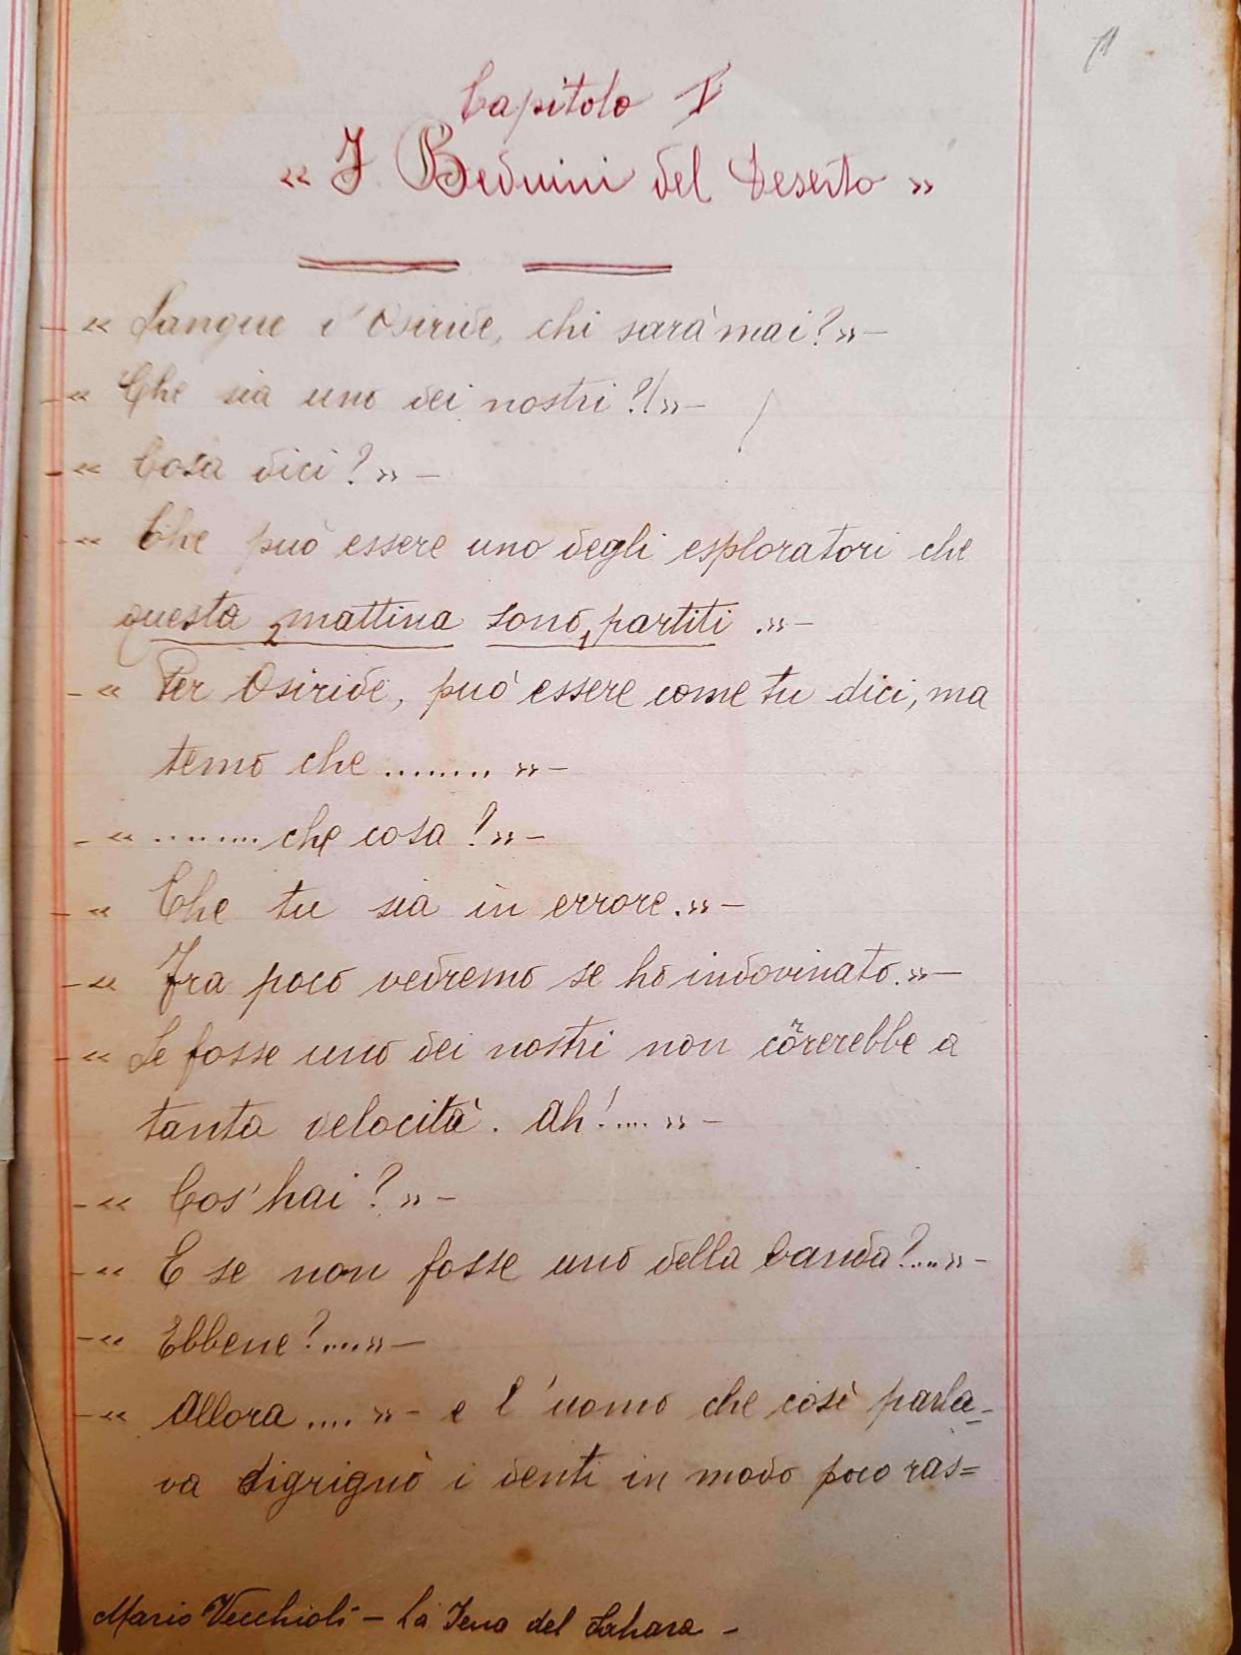 Capitolo I
« I Beduini del Deserto »
- « Sangue d'Osiride, chi sarà mai? » -
- « Che sia uno dei nostri?! » -
- « Cosa dici? » -
- « Che può essere uno degli esploratori che
questa 2 mattina sono 1 partiti. » -
- « Per Osiride, può essere come tu dici, ma
temo che ........ » -
- « ........ che cosa? » -
- « Che tu sia in errore. » -
- « Fra poco vedremo se ho indovinato. » -
- « Se fosse uno dei nostri non correrebbe a
tanta velocità. Ah! .... » -
- « Cos'hai? » -
- « E se non fosse uno della banda? ... » -
- « Ebbene? .... » -
- « Allora .... » - e l'uomo che così parla-
va digrignò i denti in modo poco ras=
Mario Vecchioli - La Jena del Sahara -